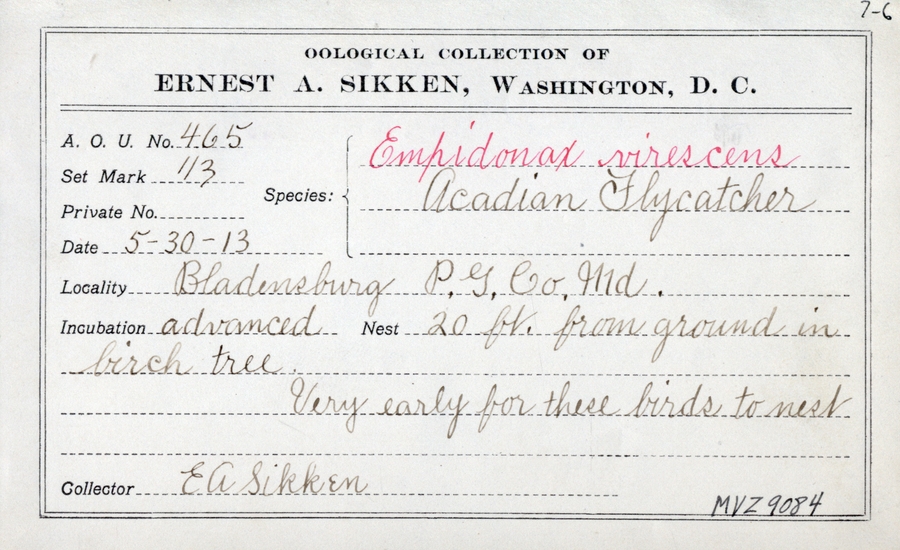 7-6
OOLOGICAL COLLECTION OF
ERNEST A. SIKKEN, WASHINGTON, D. C.
A. O. U. No. 465
Set Mark 1/3
Private No.
Date 5-30-13
Species: Empidonax virescens
Acadian Flycatcher
Locality Bladensburg P. G. Co. Md.
Incubation advanced Nest 20 ft. from ground in
birch tree.
Very early for these birds to nest
Collector EA Sikken
MVZ 9084